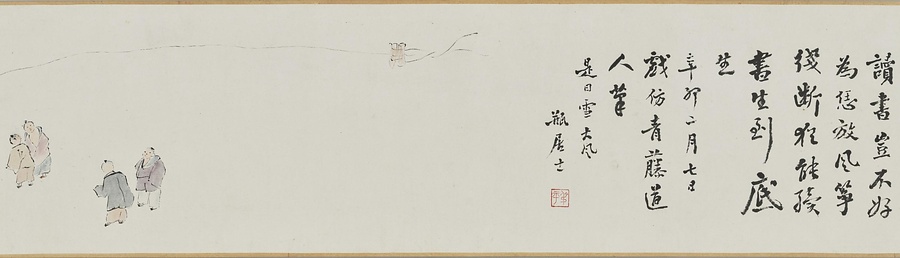 讀書豈不好
為恁放風箏
綫斷猶能續
書生到底
生
辛卯二月七日
戲仿青藤道
人筆
是日雪大風
瓶居士